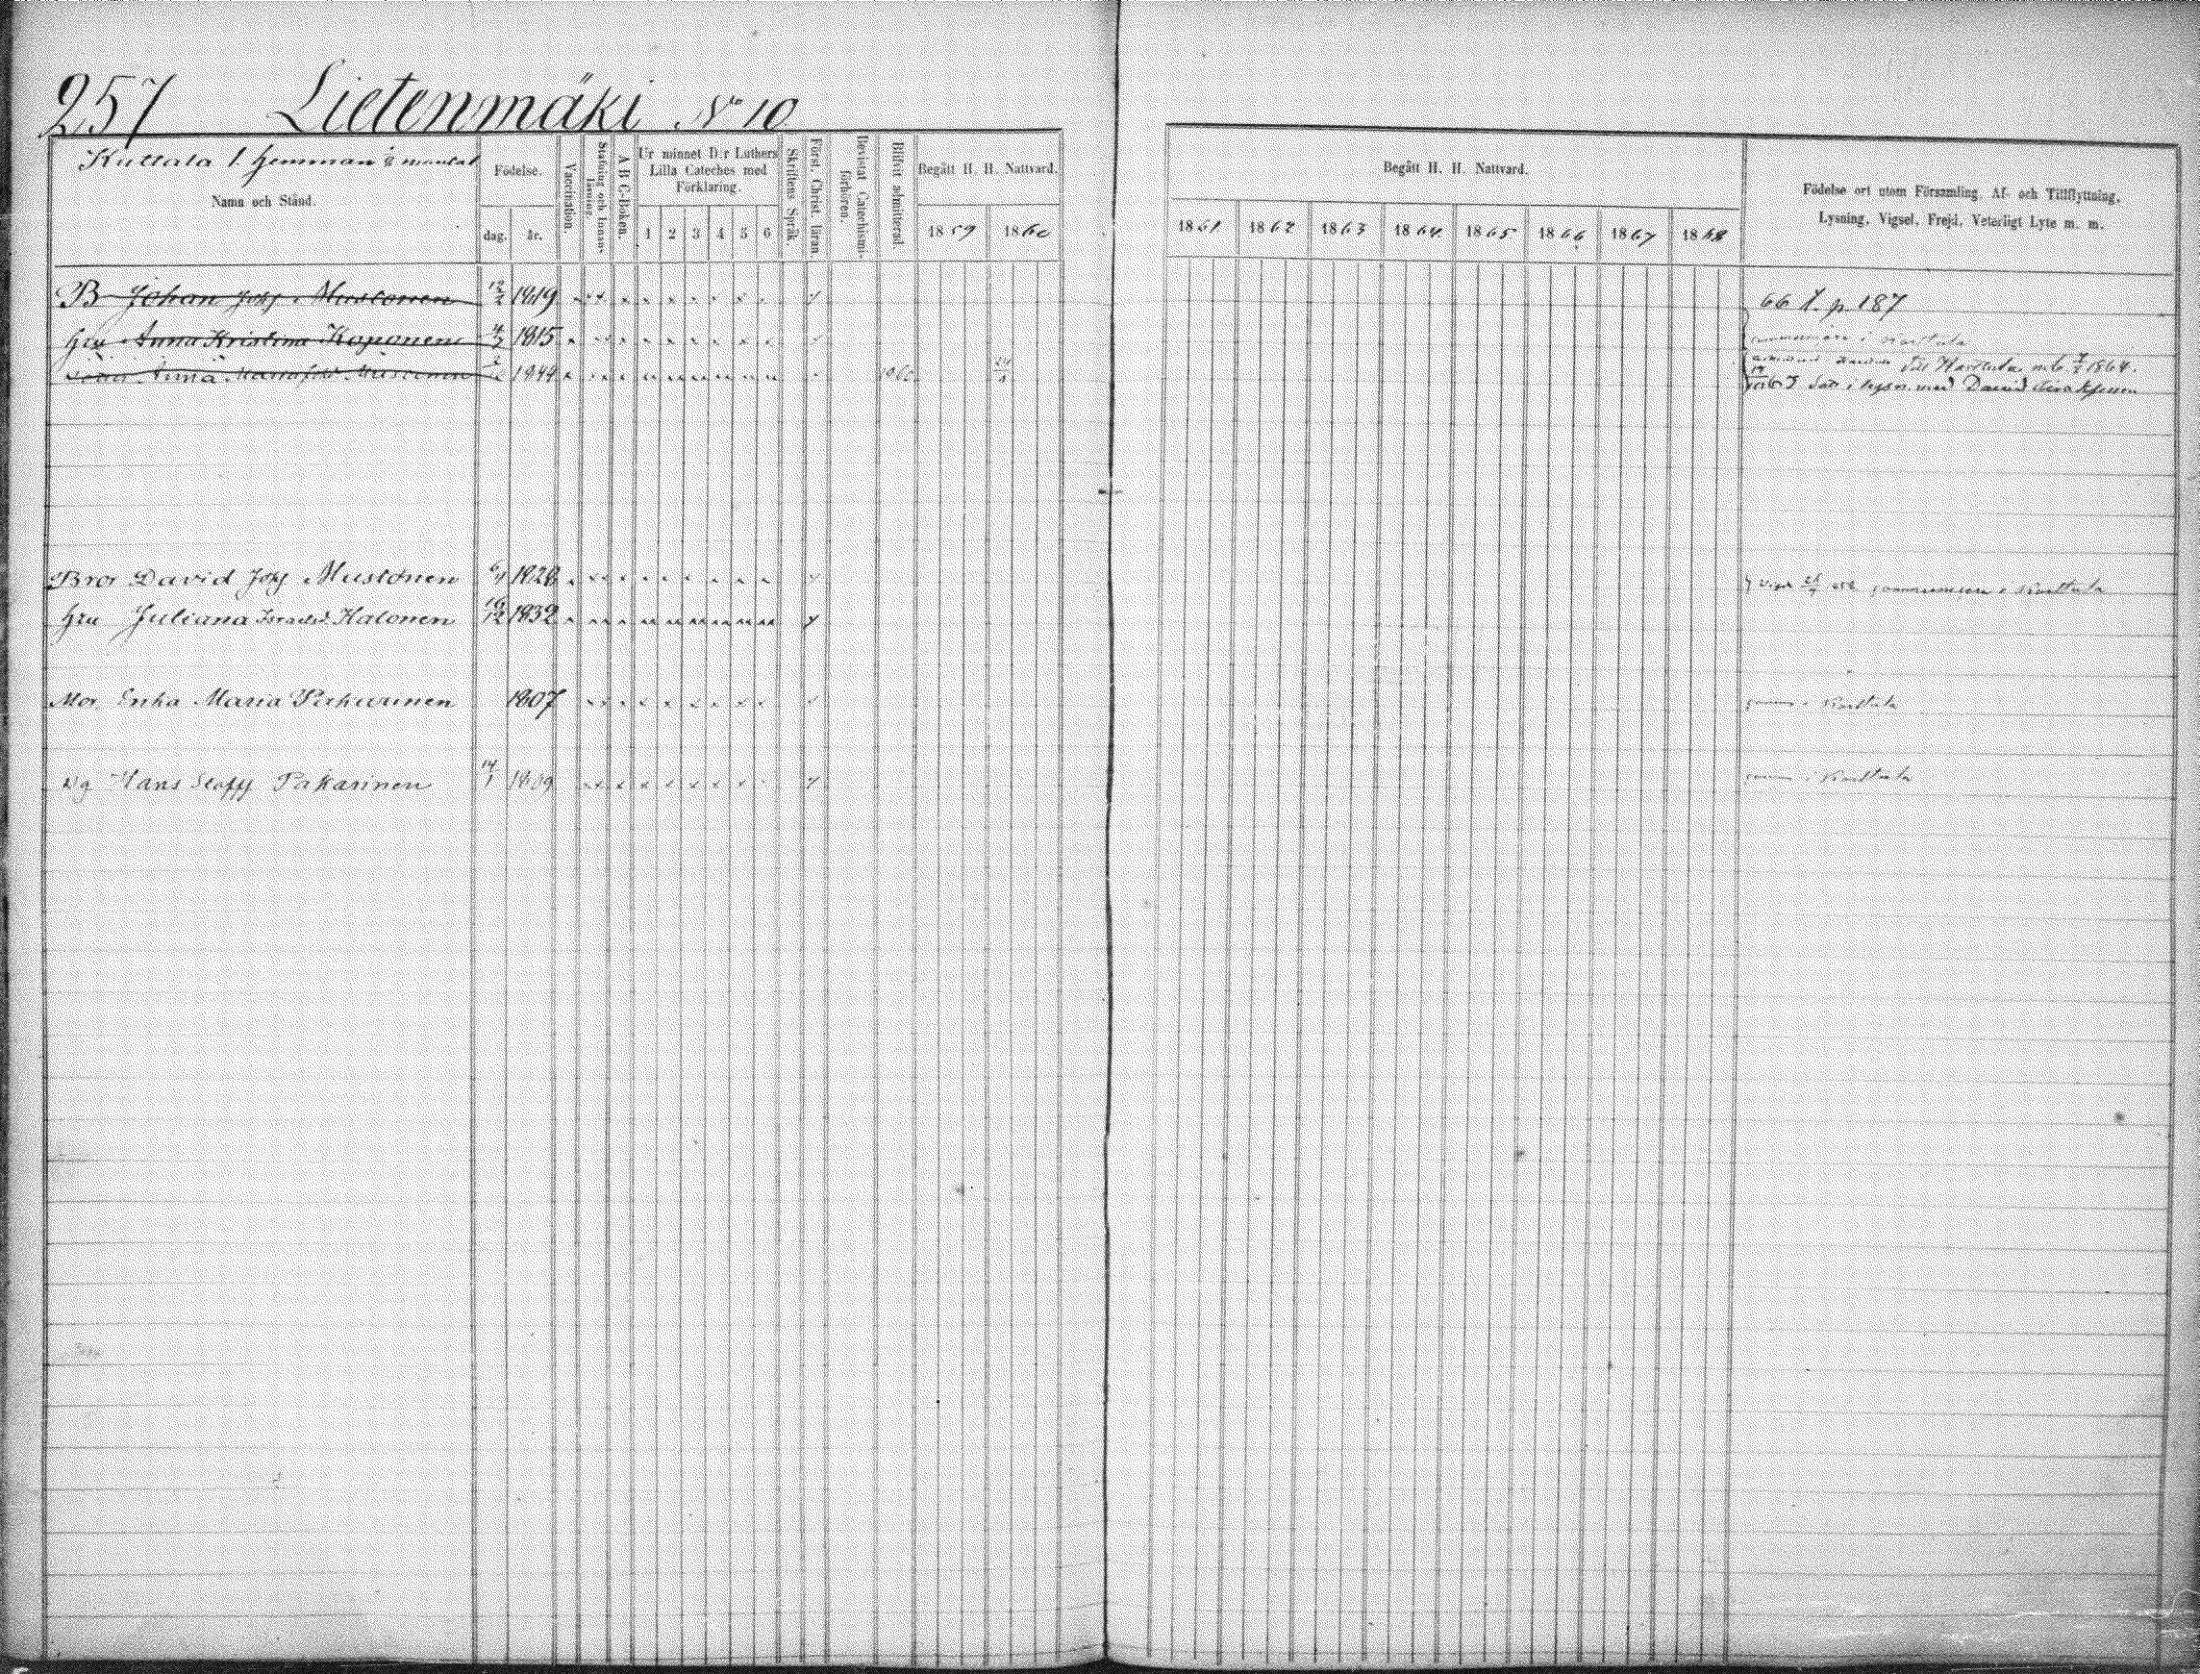 257 Lietenmäki No 10
Kuttala 1. Hemman mantal
Namn och Stånd.
Födelse.
dag. år.
Vaccination.
Stafning och Innanläsning.
A B C-Boken.
Ur minnet D:r Luthers Lilla Cateches med Förklaring.
1 2 3 4 5 6
Skriftens Språk.
Först. Christ. läran.
Bevistat Catechismi-förhören.
Blifvit admitterad.
Begått H. H. Nattvard.
1859 1860
Begått H. H. Nattvard.
1861 1862 1863 1864 1865 1866 1867 1868
Födelse ort utom Församling. Af- och Tillflyttning, Lysning, Vigsel, Frejd, Veterligt Lyte m. m.
B Johan Johs Mustonen 12/2 1819 66 p. 187
Hru Anna Kristina Koponen 1815 i Karttula
Anna Maria Mustonen 1844 1860 24 till Karttula 1864.
i lysn. med David
Bror David Johs Mustonen 1828 Vigd communicera i Karttula
Hru Juliana Israelsd. Halonen 16/12 1832
Mor Enka Maria Pakarinen 1807 Karttula
Hans Pakarinen 14/1 1809 i Karttula